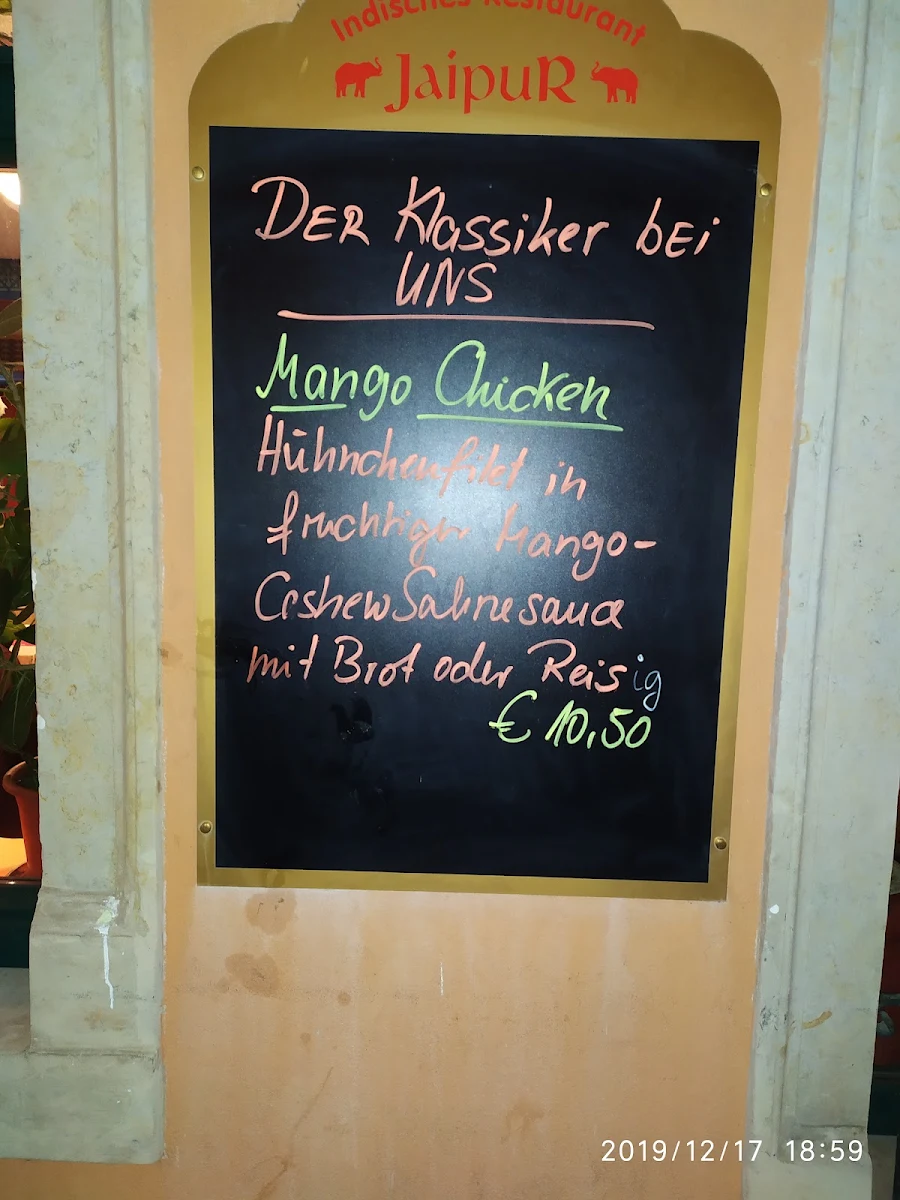 Indisches Restaurant
JaipuR
DER Klassiker bEi
UNS
Mango Chicken
Hühnchenfilet in
fruchtiger Mango-
Cashew Sahnesauce
mit Brot oder Reisig
€ 10,50
2019/12/17 18:59